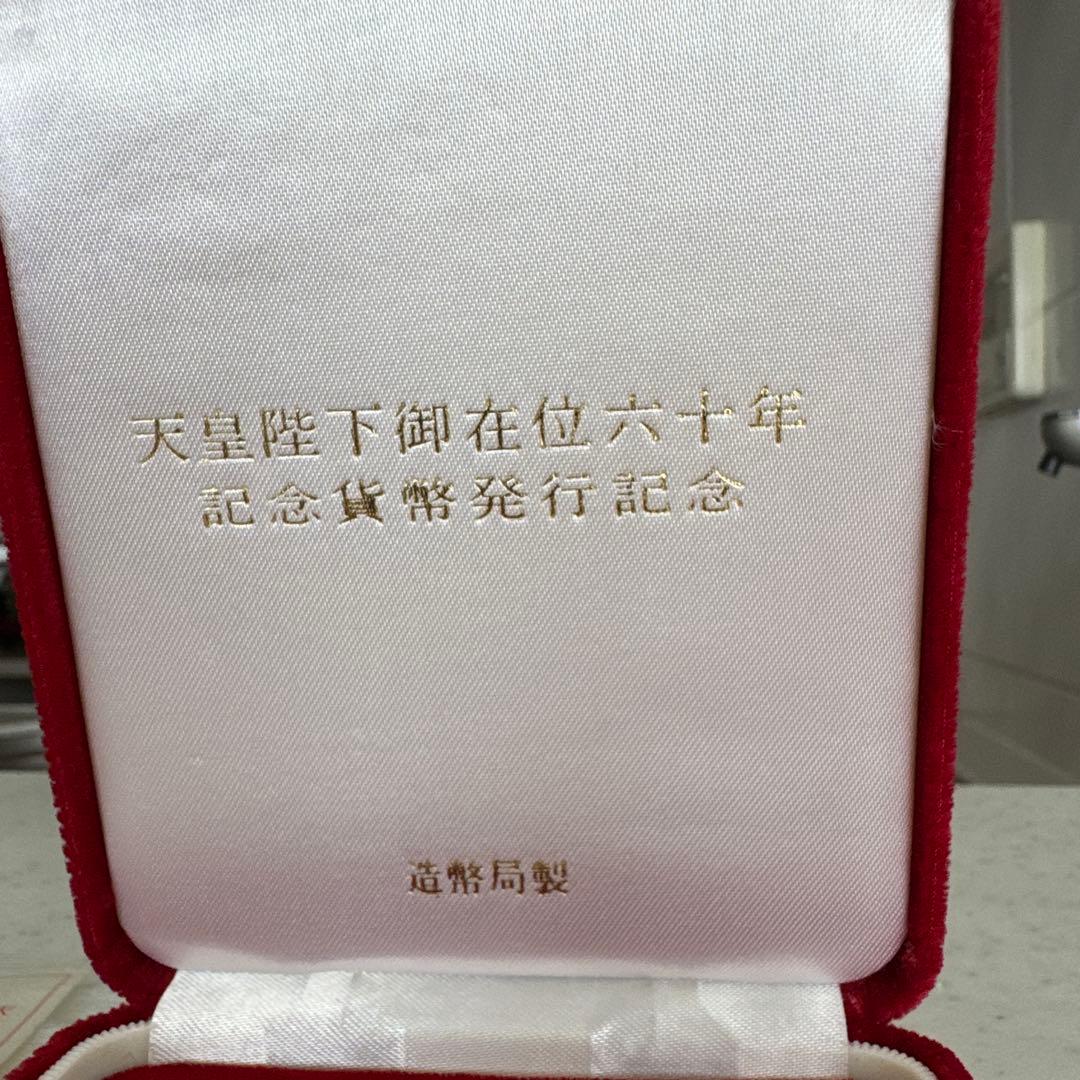 天皇陛下御在位六十年
記念貨幣発行記念
造幣局製